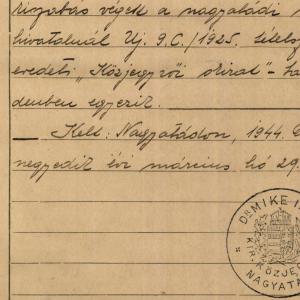 kiszabás végett a nagyatádi
hivatalnál Új. 9.C./1925. tételsz
eredeti „Közjegyzői okirat"- ha
denben egyezik.
Kelt: Nagyatádon, 1944.
negyedik évi március hó 29.
Dr. MIKE I
KIR. KÖZJE
NAGYAT